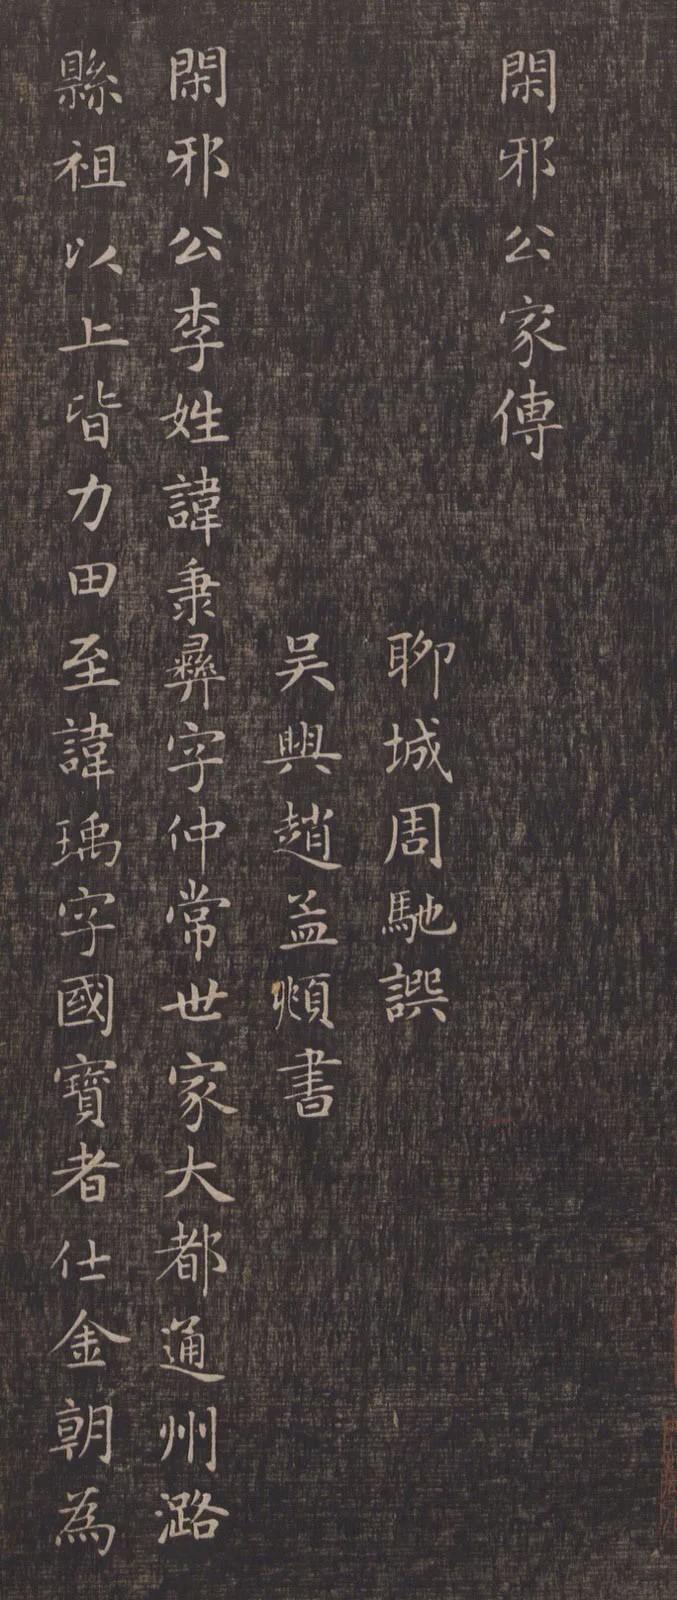 閑邪公家傳
聊城周馳譔
吴興趙孟頫書
閑邪公李姓諱秉彝字仲常世家大都通州潞
縣祖以上皆力田至諱瑀字國寶者仕金朝為